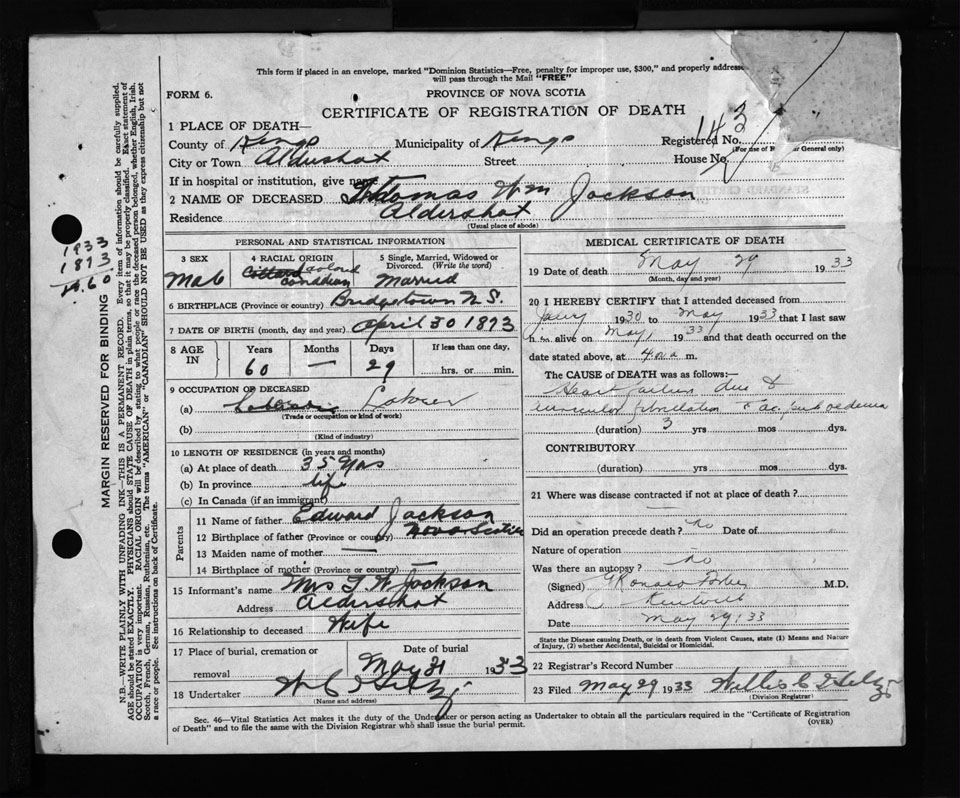 This form if placed in an envelope, marked "Dominion Statistics—Free, penalty for improper use, $300," and properly addresse
will pass through the Mail "FREE"
FORM 6.
PROVINCE OF NOVA SCOTIA
CERTIFICATE OF REGISTRATION OF DEATH
1 PLACE OF DEATH—
County of Kings Municipality of Kings Registered No. 143
(For use of R ar General only)
City or Town Aldershot Street House No.
If in hospital or institution, give name
2 NAME OF DECEASED Thomas Wm Jackson
Residence Aldershot
(Usual place of abode)
PERSONAL AND STATISTICAL INFORMATION
3 SEX 4 RACIAL ORIGIN 5 Single, Married, Widowed or Divorced. (Write the word)
Male colored Canadian Married
6 BIRTHPLACE (Province or country) Bridgetown N.S.
7 DATE OF BIRTH (month, day and year) April 30 1873
8 AGE IN Years Months Days If less than one day,
60 — 29 hrs. or min.
9 OCCUPATION OF DECEASED
(a) Laborer
(Trade or occupation or kind of work)
(b)
(Kind of industry)
10 LENGTH OF RESIDENCE (in years and months)
(a) At place of death 35 yrs
(b) In province life
(c) In Canada (if an immigrant)
Parents
11 Name of father Edward Jackson
12 Birthplace of father (Province or country) Nova Scotia
13 Maiden name of mother —
14 Birthplace of mother (Province or country)
15 Informant's name Mrs T W Jackson
Address Aldershot
16 Relationship to deceased Wife
17 Place of burial, cremation or removal Date of burial
May 31 1933
18 Undertaker
(Name and address)
MEDICAL CERTIFICATE OF DEATH
19 Date of death May 29 1933
(Month, day and year)
20 I HEREBY CERTIFY that I attended deceased from
Jany 1930 to May 1933 that I last saw
h im alive on May 1933 and that death occurred on the
date stated above, at 4 a m.
The CAUSE of DEATH was as follows:—
Heart failure due to
auricular fibrillation & ac. pul. oedema
(duration) 3 yrs mos dys.
CONTRIBUTORY
(duration) yrs mos dys.
21 Where was disease contracted if not at place of death?
—
Did an operation precede death? no Date of
Nature of operation
Was there an autopsy? no
(Signed) M.D.
Address Kentville
Date May 29/33
State the Disease causing Death, or in death from Violent Causes, state (1) Means and Nature
of Injury, (2) whether Accidental, Suicidal or Homicidal.
22 Registrar's Record Number
23 Filed May 29 1933
Division Registrar
Sec. 46—Vital Statistics Act makes it the duty of the Undertaker or person acting as Undertaker to obtain all the particulars required in the "Certificate of Registration
of Death" and to file the same with the Division Registrar who shall issue the burial permit. (OVER)
1933
1873
60
MARGIN RESERVED FOR BINDING
N.B.—WRITE PLAINLY WITH UNFADING INK—THIS IS A PERMANENT RECORD. Every item of information should be carefully supplied.
AGE should be stated EXACTLY. PHYSICIANS should STATE CAUSE OF DEATH in plain terms, so that it may be properly classified. Exact statement of
OCCUPATION is very important. RACIAL ORIGIN will be described by stating to what people or race the deceased person belonged, whether English, Irish,
Scotch, French, German, Russian, Ruthenian, etc. The terms "AMERICAN" or "CANADIAN" SHOULD NOT BE USED as they express citizenship but not
a race or people. See instructions on back of Certificate.